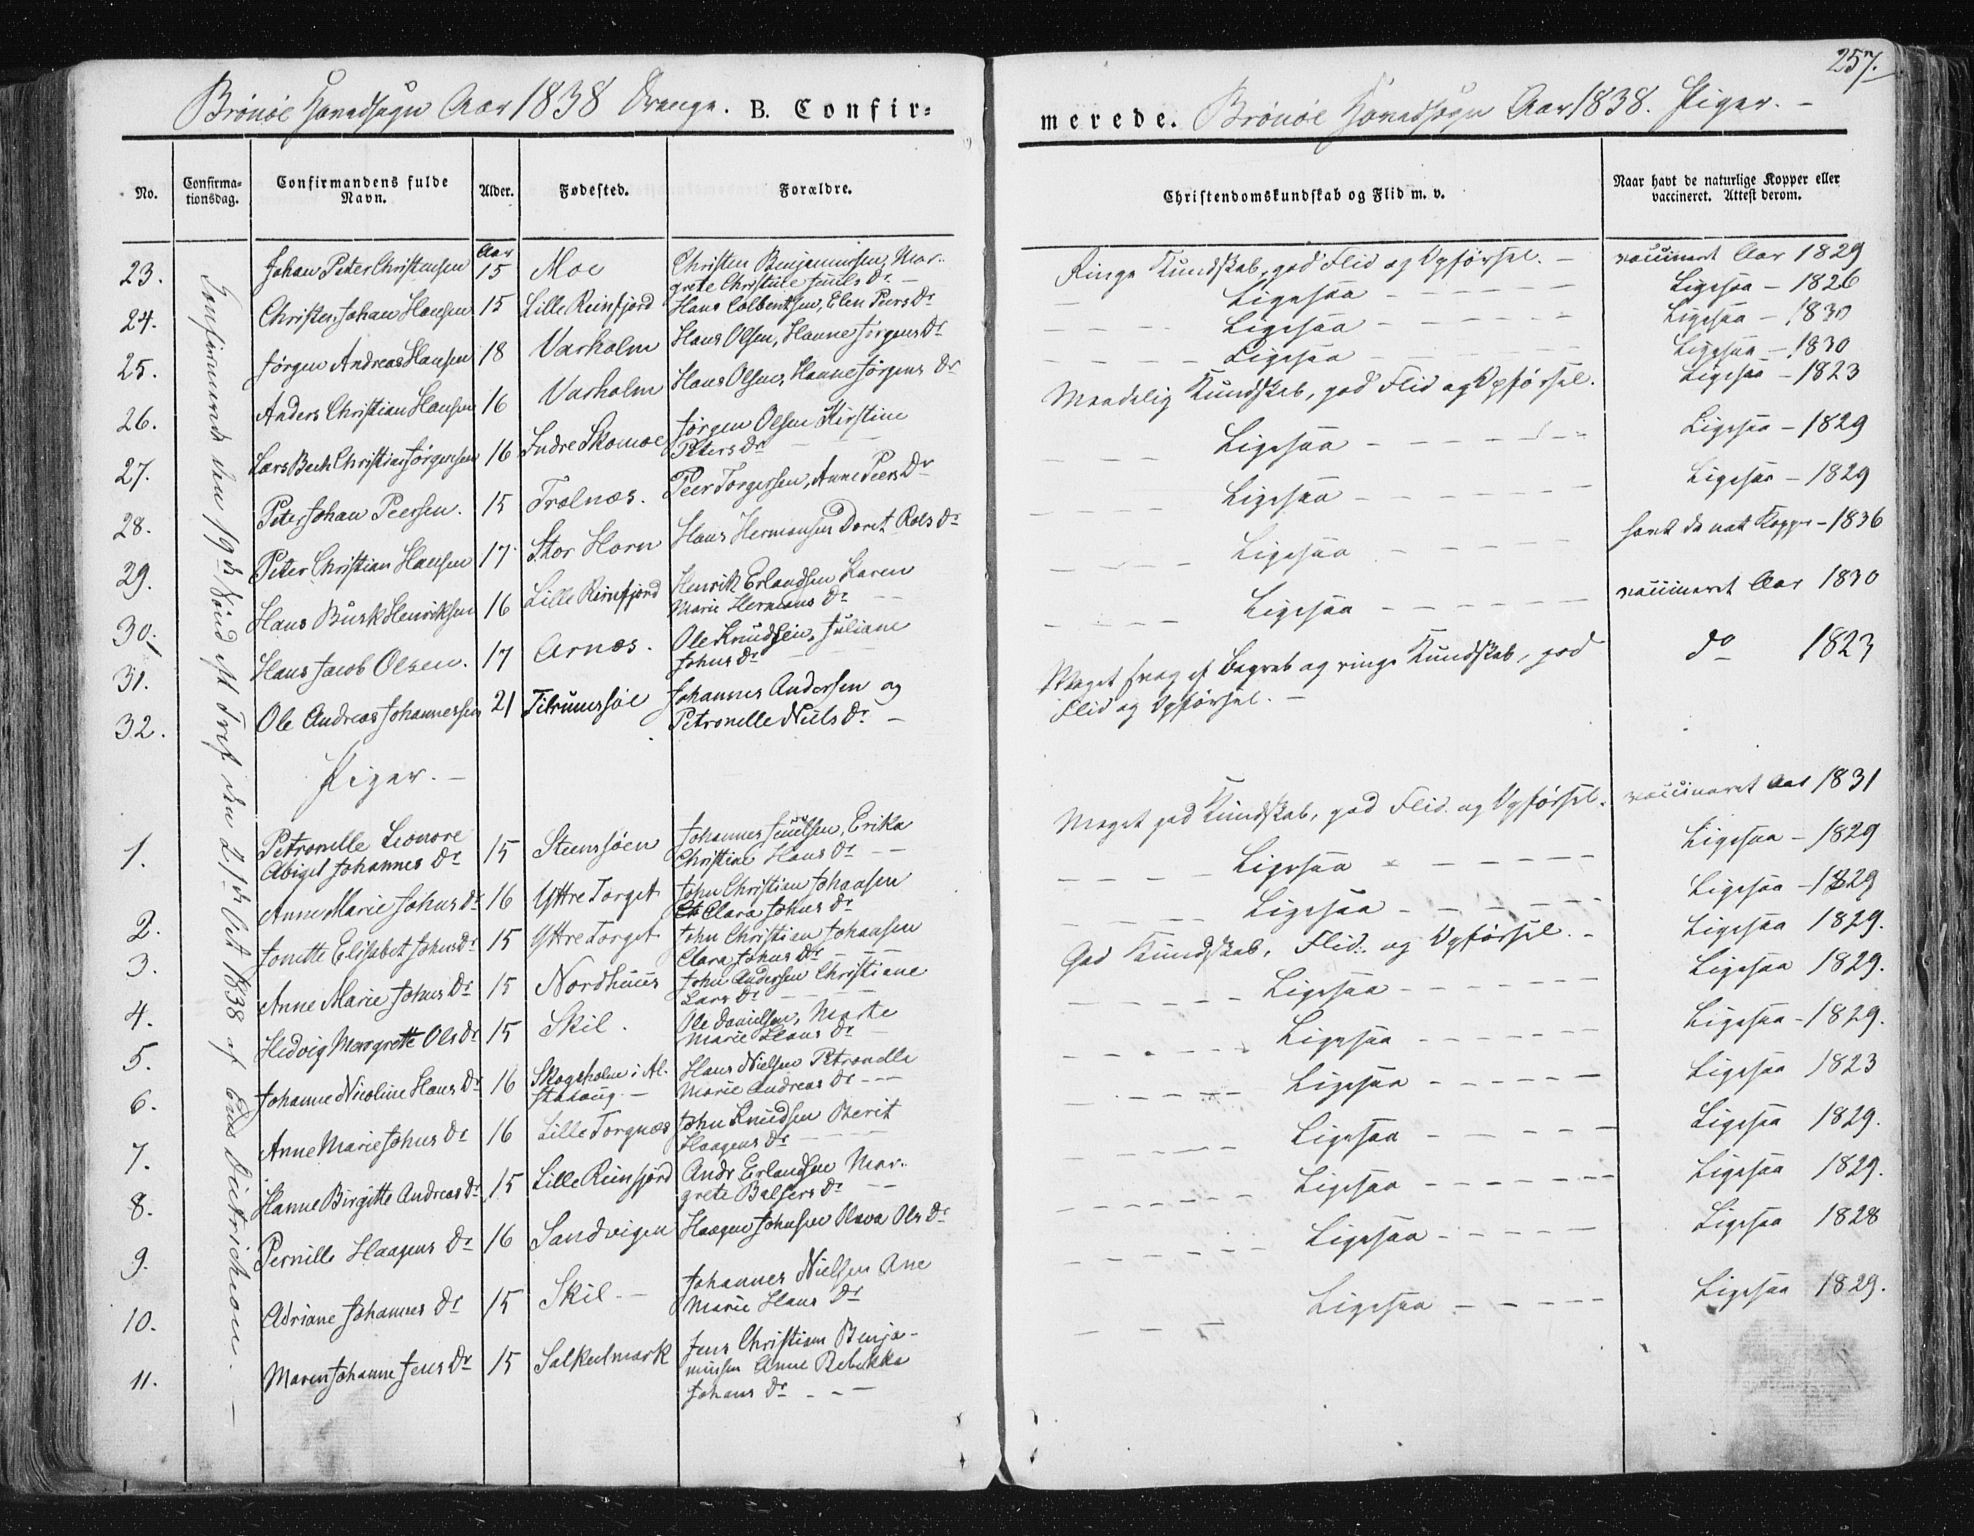 257.
Brönöe Hovedsogn Aar 1838 Drenge. B. Confir=
merede. Brönöe Hovedsogn Aar 1838. Piger. -
No.
Confirma-
tionsdag.
Confirmandens fulde
Navn.
Alder.
Fødested.
Forældre.
Christendomskundskab og Flid m. v.
Naar havt de naturlige Kopper eller
vaccineret. Attest derom.
Confirmerede den 19de Sönd. eft. Tref. den 21de Oct. 1838 af
23. Johan Peter Christensen Aar 15 Moe Christen Benjaminsen, Mar-
grete Christine Dr. - Ringe Kundskab, god Flid og Opförsel. - vaccineret Aar 1829
24. Christen Johan Hansen 15 Lille Reinfjord Hans Colbentsen, Elen Peers Dr Ligesaa Ligesaa - 1826
25. Jörgen Andreas Hansen 18 Varholm Hans Olsen, Hanne Jörgens Dr Ligesaa Ligesaa - 1830
26. Anders Christian Hansen 16 Varholm Hans Olsen, Hanne Jörgens Dr Ligesaa Ligesaa - 1830
27. Lars Bech Christian Jörgensen 16 Indre Skomoe Jörgen Olsen Kirstine
Peters Dr Maadelig Kundskab, god Flid og Opförsel. Ligesaa - 1823
28. Peter Johan Peersen. 15 Trælnæs. Peer Torgersen, Anne Peers Dr Ligesaa Ligesaa - 1829
29. Peter Christian Hansen 17 Stor Horn Hans Hermansen Doret Rols Dr Ligesaa Ligesaa - 1829
30. Hans Busk Henriksen 16 Lille Reinfjord Henrik Erlandsen Karen
Marie Hermans Dr Ligesaa havt de nat Kopper - 1836
31. Hans Jacob Olsen. 17 Arnæs. Ole Knudsen, Juliane
Johns Dr Ligesaa vaccineret Aar 1830
32. Ole Andreas Johannesen 21 Tilrumsöe Johannes Andersen og
Petronelle Niels Dr - Meget svag af Begreb og ringe Kundskab, god
Flid og Opförsel. - do 1823
Piger. -
1. Petronelle Leonore
Abigel Johannes Dr 15 Steensöen Johannes, Erika
Christine Hans Dr Meget god Kundskab, god Flid og Opförsel. vaccineret Aar 1831
2. Anne Marie Johns Dr 16 Yttre Torget John Christian Johansen
Clara Johns Dr Ligesaa Ligesaa - 1829
3. Jonette Elisabet Johns Dr 15 Yttre Torget John Christian Johansen
Clara Johns Dr Ligesaa Ligesaa - 1829
4. Anne Marie Johns Dr 15 Nordhuus John Andersen Christiane
Lars Dr God Kundskab, Flid og Opförsel. - Ligesaa 1829.
5. Hedvig Margrette Ols Dr 15 Skil. Ole Danielsen, Marte
Marie Hans Dr Ligesaa Ligesaa 1829.
6. Johanne Nicoline Hans Dr 16 Skogsholm i Al-
stahoug. - Hans Nielsen Petronelle
Marie Andreas Dr - - - Ligesaa Ligesaa - 1829.
7. Anne Marie Johns Dr 16 Lille Torgnæs John Knudsen Berit
Haagens Dr Ligesaa Ligesaa 1823
8. Hanne Birgitte Andreas Dr 15 Lille Reinfjord Andr Erlandsen Mar-
grete Balsers Dr Ligesaa Ligesaa 1829.
9. Pernille Haagens Dr 16 Sandvigen Haagen Johnsen Olava Ols Dr Ligesaa Ligesaa 1829.
10. Adriane Johannes Dr 15 Skil. - Johannes Nielsen Ane
Marie Hans Dr Ligesaa Ligesaa 1828
11. Maren Johanne Jens Dr 15 Salhusmark Jens Christian Benja-
minsen Anne Rebekka
Johans Dr - - - Ligesaa Ligesaa 1829.